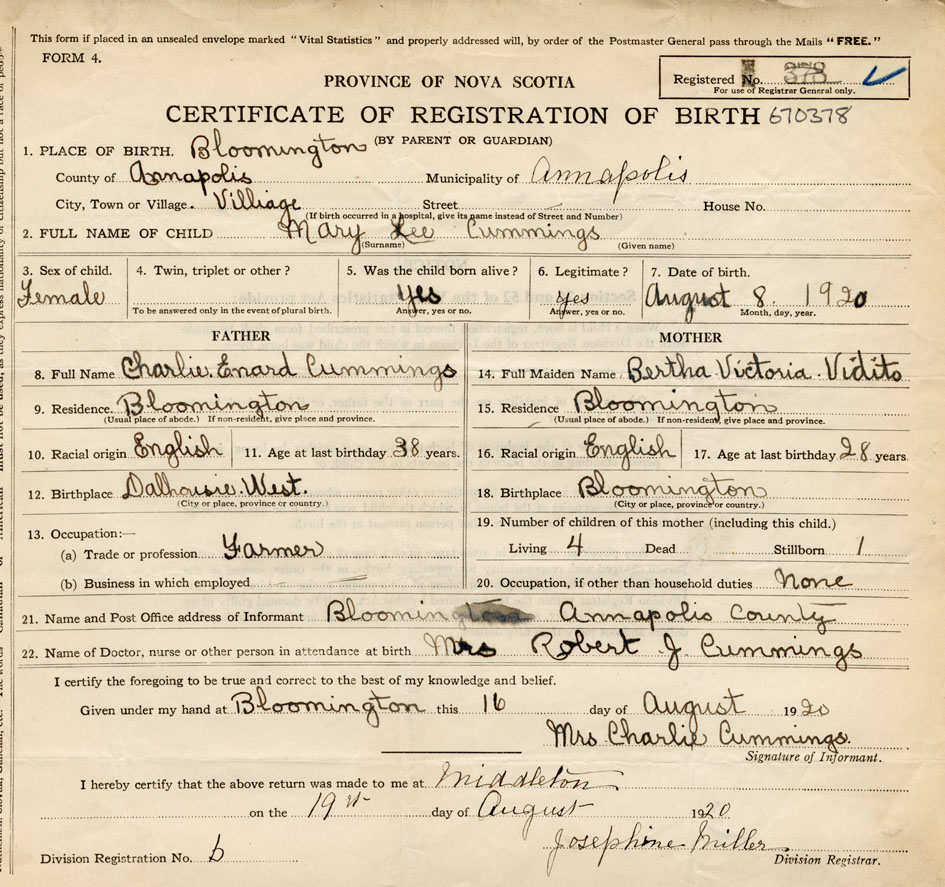 This form if placed in an unsealed envelope marked "Vital Statistics" and properly addressed will, by order of the Postmaster General pass through the Mails "FREE."
FORM 4.
PROVINCE OF NOVA SCOTIA
Registered No. 378
For use of Registrar General only.
CERTIFICATE OF REGISTRATION OF BIRTH 670378
(BY PARENT OR GUARDIAN)
1. PLACE OF BIRTH. Bloomington
County of Annapolis Municipality of Annapolis
City, Town or Village. Villiage Street House No.
(If birth occurred in a hospital, give its name instead of Street and Number)
2. FULL NAME OF CHILD Mary Lee Cummings
(Surname) (Given name)
3. Sex of child. 4. Twin, triplet or other? 5. Was the child born alive? 6. Legitimate? 7. Date of birth.
Female Yes Yes August 8. 1920
To be answered only in the event of plural birth. Answer, yes or no. Answer, yes or no. Month, day, year.
FATHER MOTHER
8. Full Name Charlie Enard Cummings 14. Full Maiden Name Bertha Victoria Vidito
9. Residence. Bloomington 15. Residence Bloomington
(Usual place of abode.) If non-resident, give place and province. (Usual place of abode.) If non-resident, give place and province.
10. Racial origin English 11. Age at last birthday 38 years. 16. Racial origin English 17. Age at last birthday 28 years.
12. Birthplace Dalhousie West. 18. Birthplace Bloomington
(City or place, province or country.) (City or place, province or country.)
13. Occupation:— 19. Number of children of this mother (including this child.)
(a) Trade or profession Farmer Living 4 Dead Stillborn 1
(b) Business in which employed 20. Occupation, if other than household duties None
21. Name and Post Office address of Informant Bloomington Annapolis County
22. Name of Doctor, nurse or other person in attendance at birth Mrs Robert J. Cummings
I certify the foregoing to be true and correct to the best of my knowledge and belief.
Given under my hand at Bloomington this 16 day of August 1920
Mrs Charlie Cummings.
Signature of Informant.
I hereby certify that the above return was made to me at Middleton
on the 19th day of August 1920
Josephine Miller
Division Registration No. b Division Registrar.